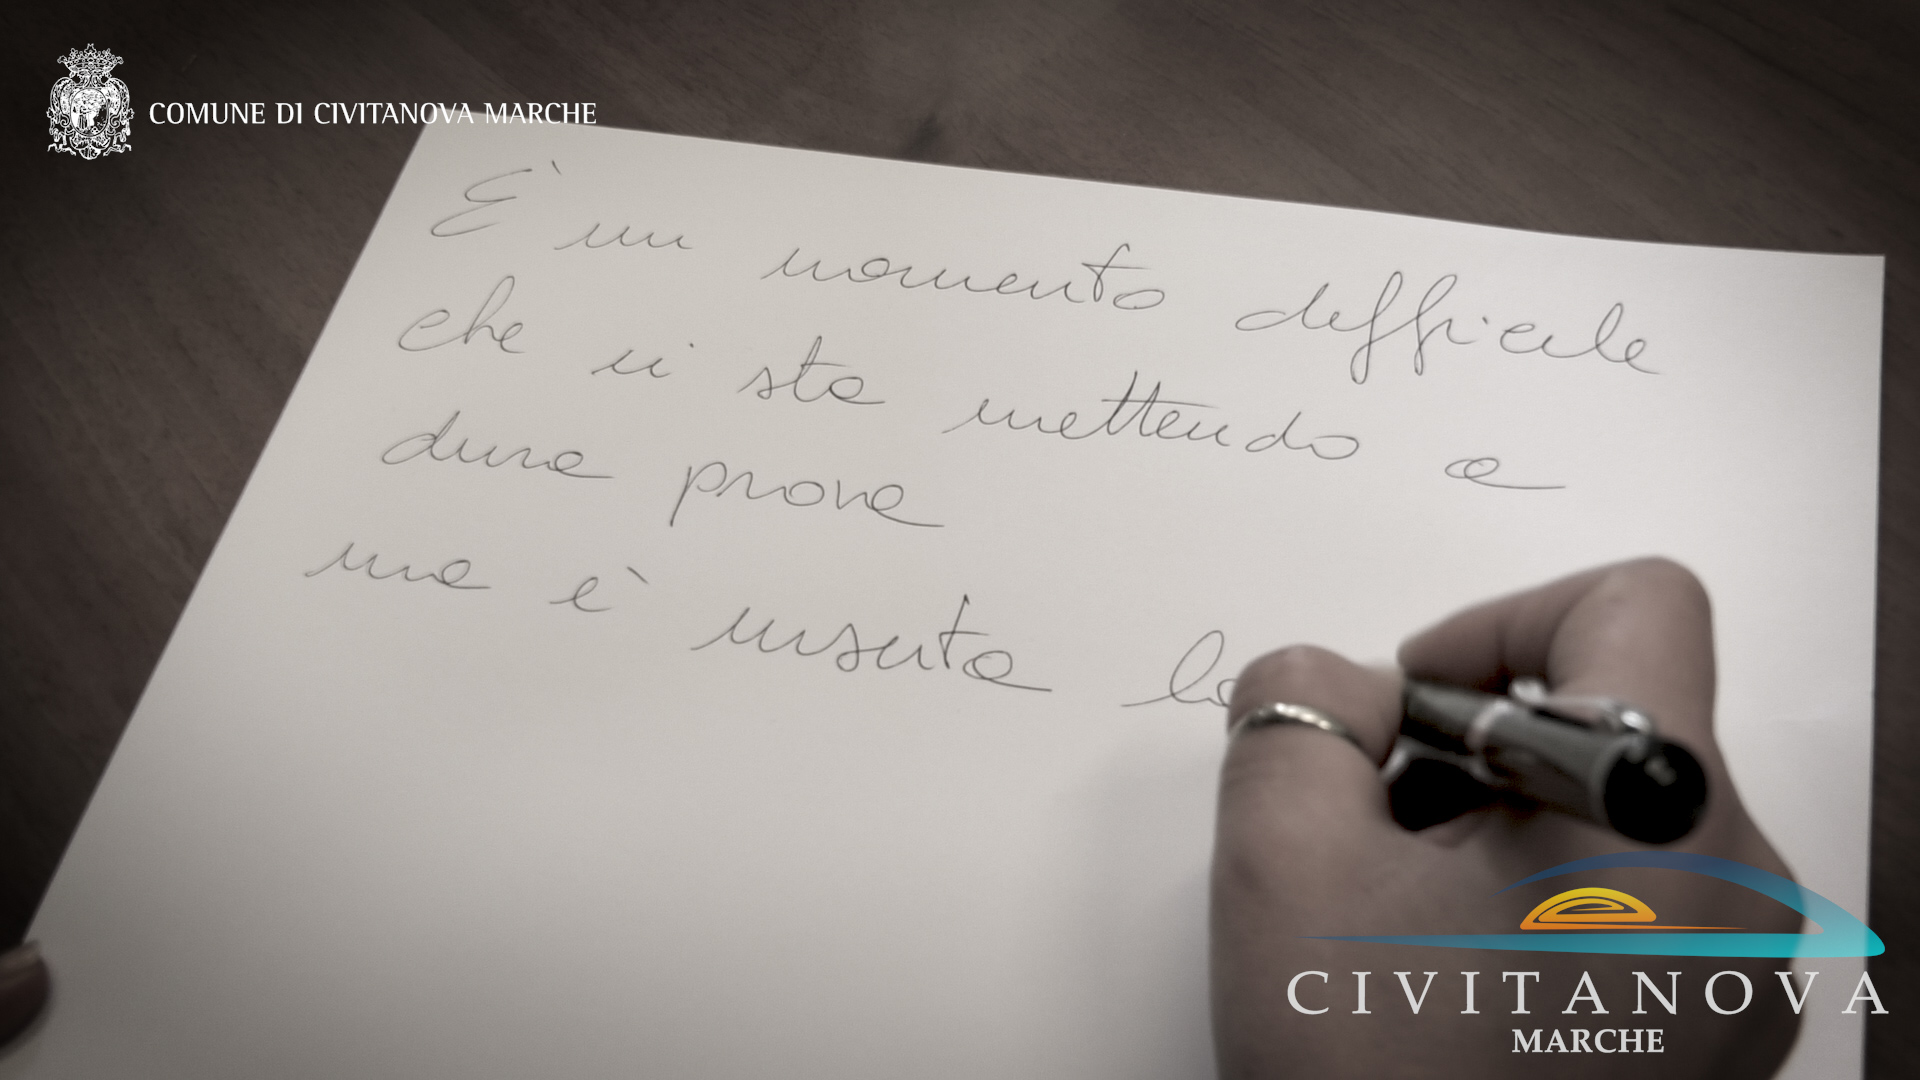 COMUNE DI CIVITANOVA MARCHE
È un momento difficile
che ci sta mettendo a
dura prova
ma è insita
CIVITANOVA
MARCHE